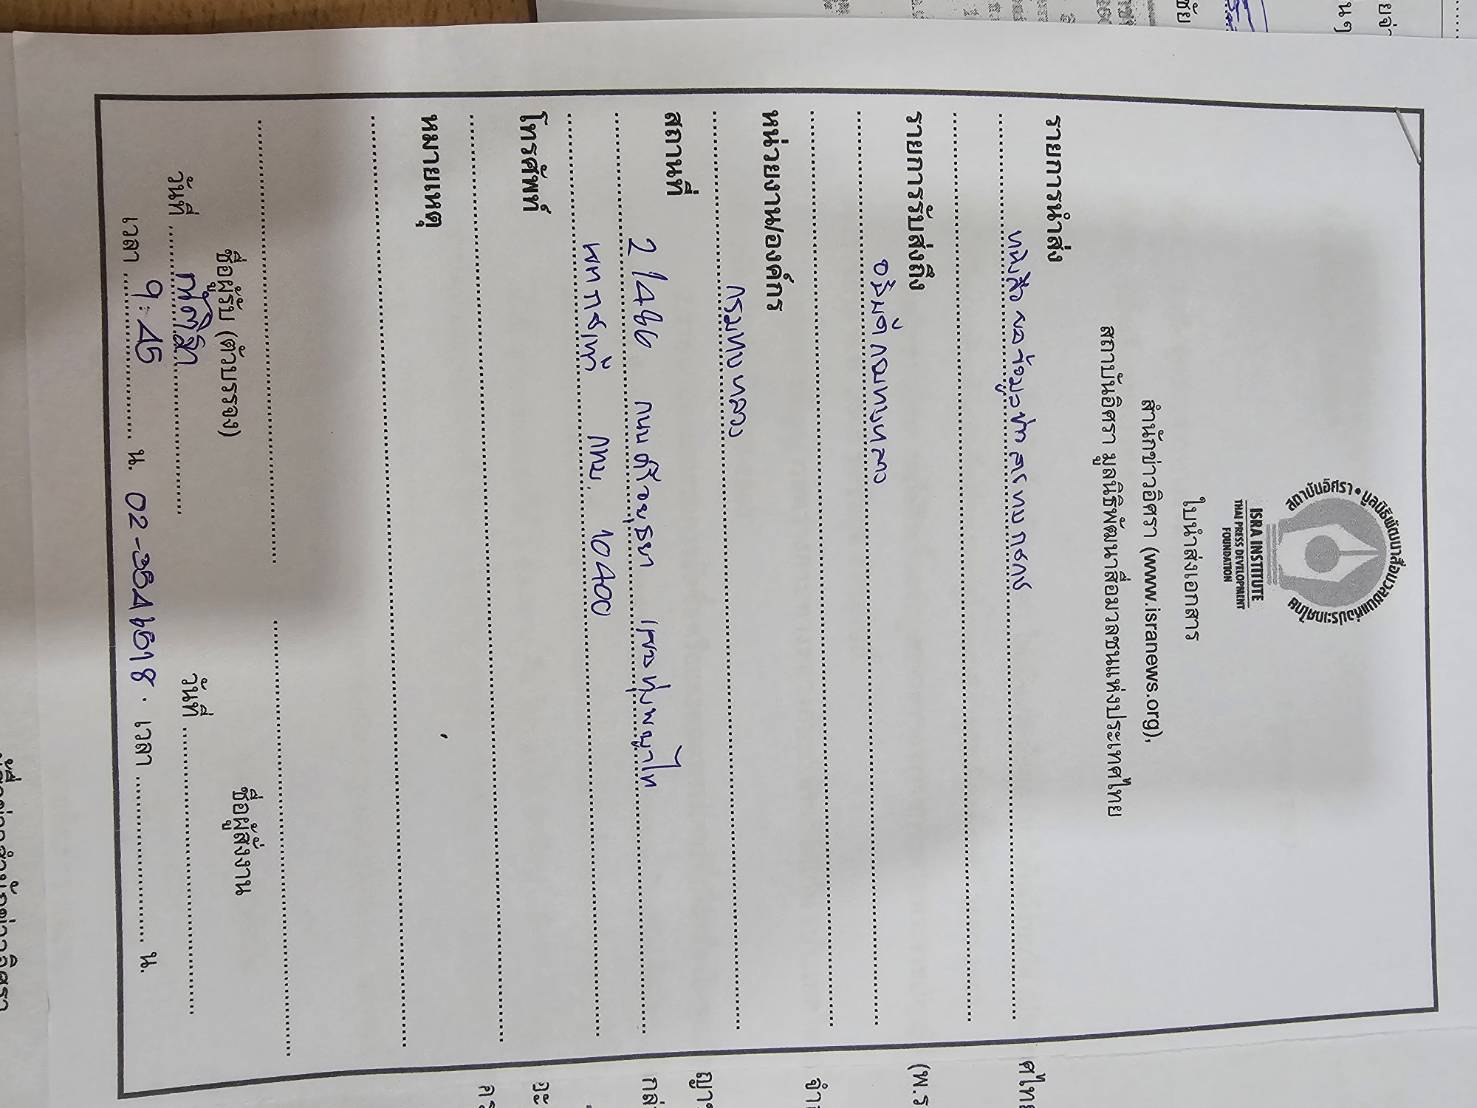 สถาบันอิศรา • มูลนิธิพัฒนาสื่อมวลชนแห่งประเทศไทย
ISRA INSTITUTE
THAI PRESS DEVELOPMENT
FOUNDATION
ใบนำส่งเอกสาร
สำนักข่าวอิศรา (www.isranews.org),
สถาบันอิศรา มูลนิธิพัฒนาสื่อมวลชนแห่งประเทศไทย
รายการนำส่ง
หนังสือขอข้อมูลข่าวสารทางราชการ
รายการรับส่งถึง
อธิบดีกรมทางหลวง
หน่วยงาน/องค์กร
กรมทางหลวง
สถานที่
2/486 ถนนศรีอยุธยา เขตทุ่งพญาไท
กทม. 10400
โทรศัพท์
หมายเหตุ
ชื่อผู้รับ (ตัวบรรจง)
ชื่อผู้สั่งงาน
วันที่
วันที่
เวลา 9.45 น. 02-3541618. เวลา น.